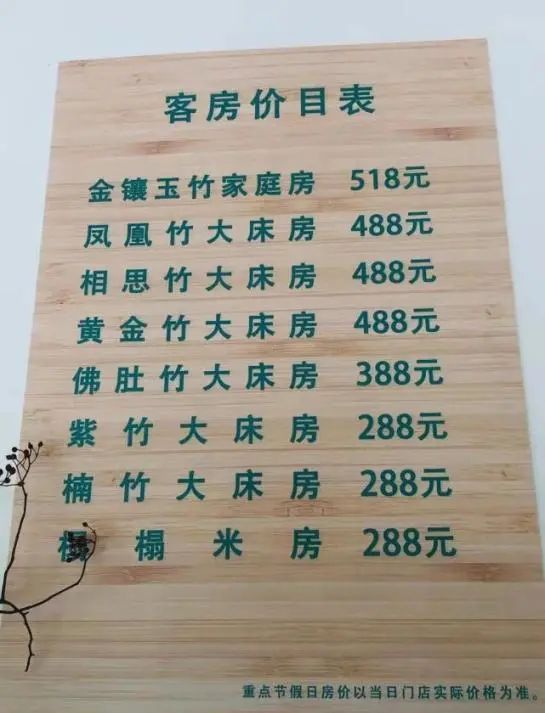 客房价目表
金镶玉竹家庭房 518元
凤凰竹大床房 488元
相思竹大床房 488元
黄金竹大床房 488元
佛肚竹大床房 388元
紫竹大床房 288元
楠竹大床房 288元
榻榻米房 288元
重点节假日房价以当日门店实际价格为准。